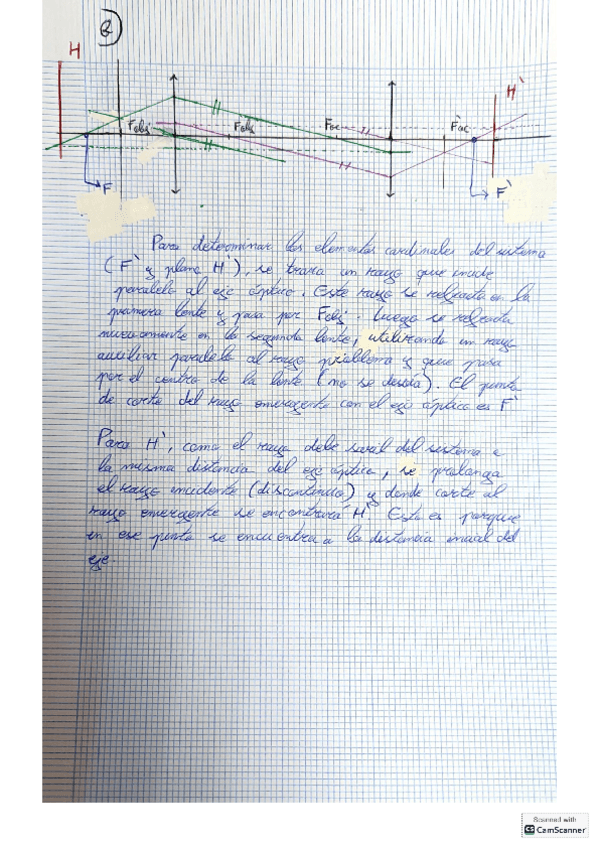 B)
H
H'
Fobj
F'obj
Foc
F'oc
F
F'
Para determinar los elementos cardinales del sistema
(F' y plano H'), se traza un rayo que incide
paralelo al eje óptico. Este rayo se refracta en la
primera lente y pasa por F'obj. Luego se refracta
nuevamente en la segunda lente, utilizando un rayo
auxiliar paralelo al rayo problema y que pasa
por el centro de la lente (no se desvía). El punto
de corte del rayo emergente con el eje óptico es F'
Para H', como el rayo debe salir del sistema a
la misma distancia del eje óptico, se prolonga
el rayo incidente (discontinuo) y donde corte al
rayo emergente se encontrará H'. Esto es porque
en ese punto se encuentra a la distancia inicial del
eje.
Scanned with
CS CamScanner